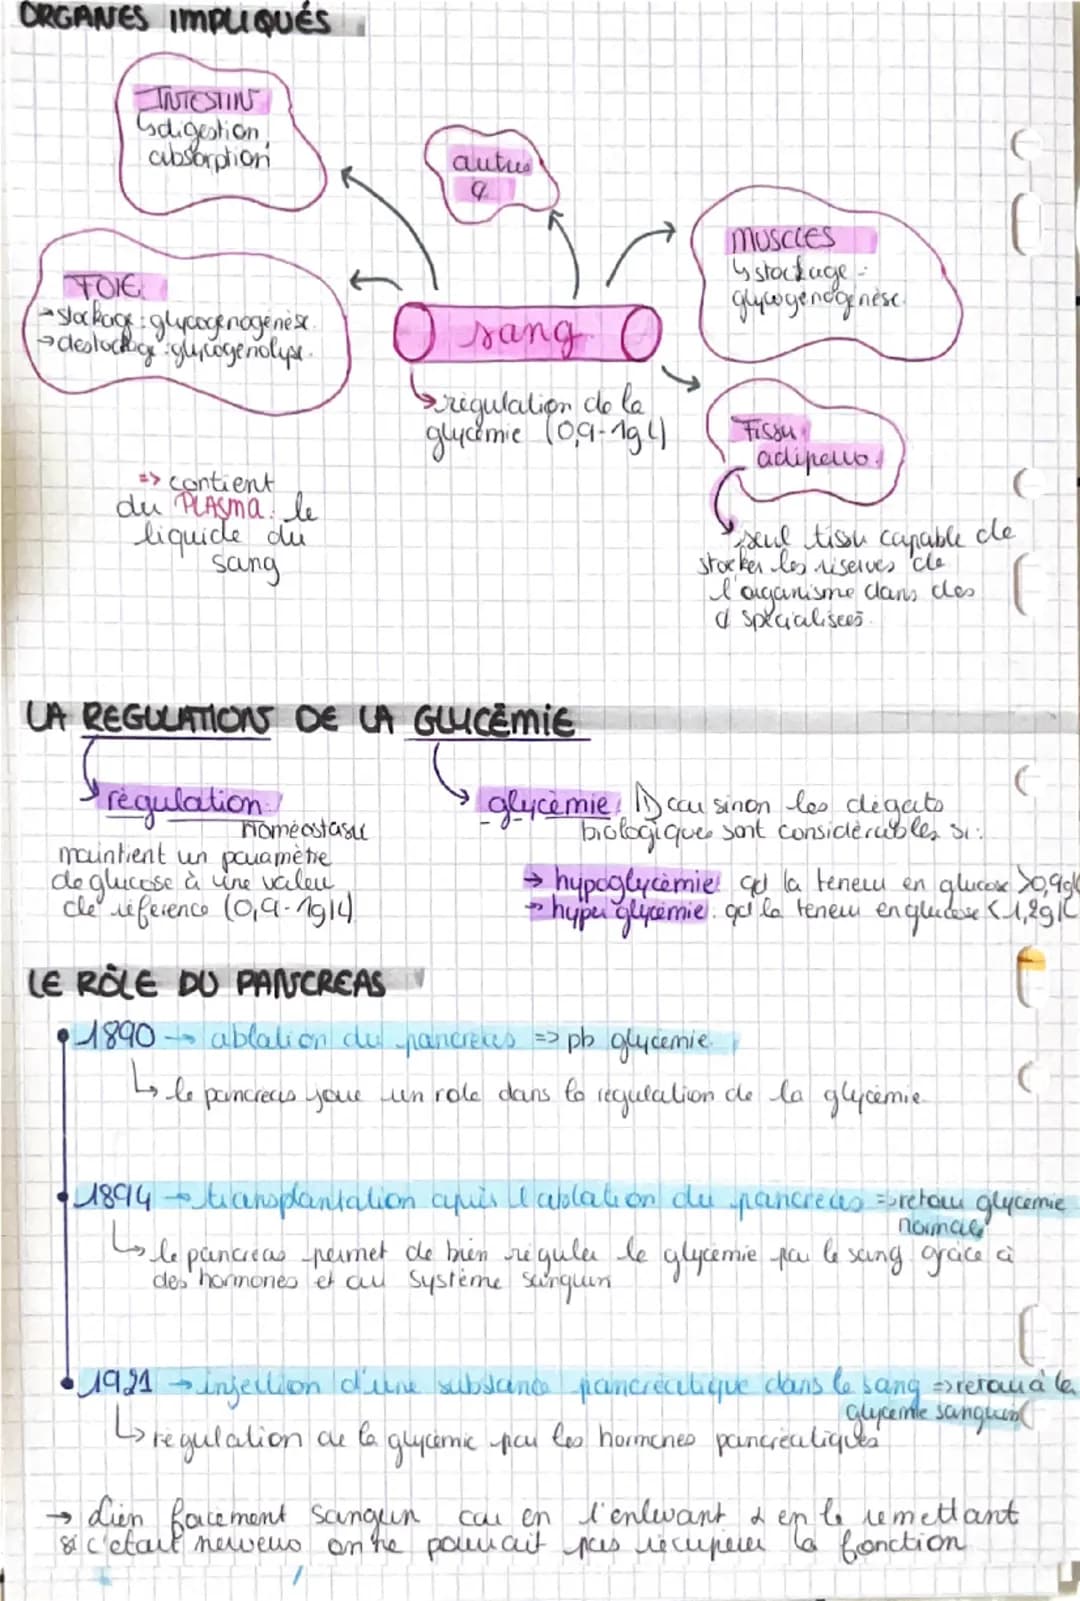 ORGANES IMPLIQUÉS
INTESTIN
↳digestion,
absorption
autres
FOIE
→stockage : glycogénogénèse.
→déstockage : glycogénolyse.
MUSCLES
↳ stockage :
glycogénogénèse.
sang
↳ régulation de la
glycémie (0,9-1g L)
Tissu
adipeux.
↳ seul tissu capable de
stocker les réserves de
l'organisme dans des
spécialisées.
=> contient
du PLASMA : le
liquide du
sang
LA REGULATION DE LA GLYCÉMIE
régulation :
homéostasie
maintient un paramètre
de glucose à une valeur
de référence (0,9-1g/L)
glycémie ⚠ car sinon les dégâts
biologiques sont considérables si :
→ hypoglycémie : qd la teneur en glucose >0,9g/L
→ hyperglycémie : qd la teneur en glucose < 1,2g/L
LE RÔLE DU PANCREAS
1890 → ablation du pancréas => pb glycémie.
↳ le pancréas joue un role dans la régulation de la glycémie.
1894 → transplantation après l'ablation du pancréas => retour glycemie
normale
↳ le pancréas permet de bien réguler le glycémie par le sang grâce à
des hormones et au système sanguin
1921 → injection d'une substance pancréatique dans le sang => retour à la
glycemie sanguin
↳ régulation de la glycémie par les hormones pancréatiques
→ Lien forcement sanguin car en l'enlevant & en le remettant
si c'était nerveux on ne pouvait pas récupérer la fonction